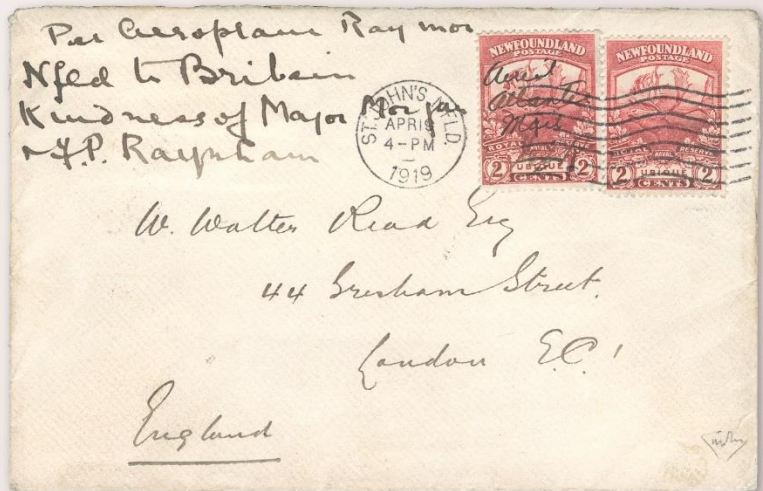 Per Aeroplane Raymor
Nfld to Britain
Kindness of Major Morgan
& F.P. Raynham
ST. JOHN'S N'FLD.
APR 19
4-PM
1919
NEWFOUNDLAND
POSTAGE
Aerial
Atlantic
Mail
ROYAL NAVAL RESERVE
UBIQUE
2 CENTS 2
NEWFOUNDLAND
POSTAGE
ROYAL NAVAL RESERVE
UBIQUE
2 CENTS 2
W. Walter Read Esq
44 Gresham Street.
London E.C.
England